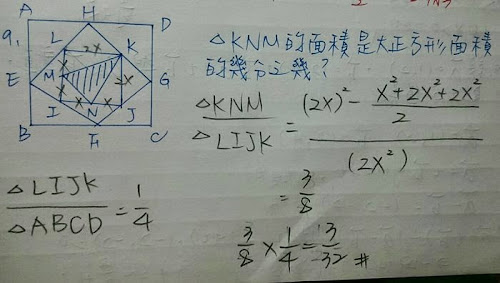 9.
A H D
L 2x K
E M x 2x G
x x x
I N J
B F C
△KNM的面積是大正方形面積
的幾分之幾?
△KNM / △LIJK = ((2x)² - (x²+2x²+2x²)/2) / (2x²)
= 3/8
△LIJK / △ABCD = 1/4
3/8 × 1/4 = 3/32 #